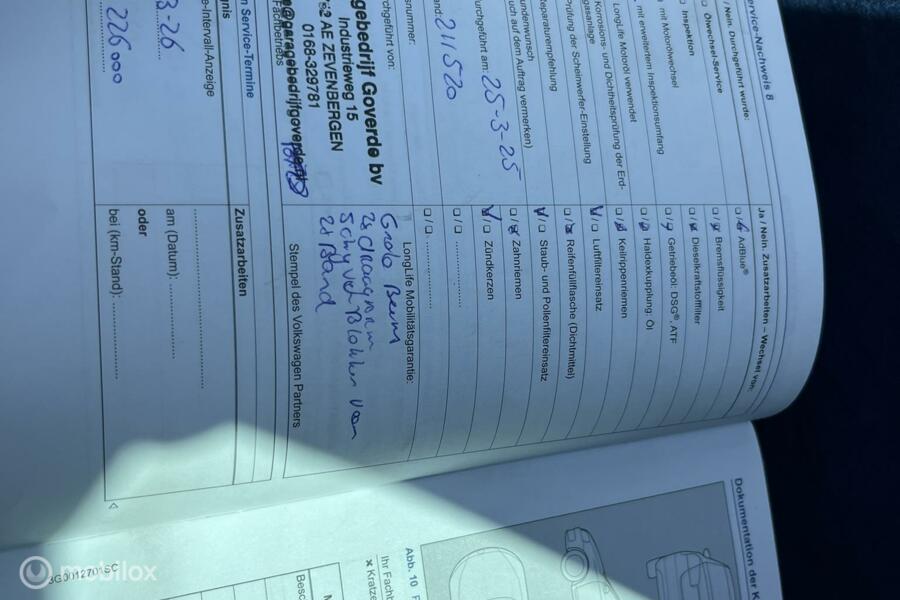 ervice-Nachweis 8
/ Nein. Durchgeführt wurde:
Ölwechsel-Service
Inspektion
mit Motorölwechsel
mit erweitertem Inspektionsumfang
LongLife Motoröl verwendet
Korrosions- und Dichtheitsprüfung der Erd-
gasanlage
rüfung der Scheinwerfer-Einstellung
Reparaturempfehlung
undenwunsch
uch auf dem Auftrag vermerken)
urchgeführt am: 25-3-25
and: 211520
gsnummer:
rchgeführt von:
gebedrijf Goverde bv
Industrieweg 15
2 AE ZEVENBERGEN
0168-329781
e@garagebedrijfgoverde.nl
Fachbetriebs
n Service-Termine
gnis
e-Intervall-Anzeige
3-26
226000
Ja / Nein. Zusatzarbeiten – Wechsel von:
AdBlue®
Bremsflüssigkeit
Dieselkraftstofffilter
Getriebeöl: DSG®, ATF
Haldexkupplung: Öl
Keilrippenriemen
Luftfiltereinsatz
Reifenfüllflasche (Dichtmittel)
Staub- und Pollenfiltereinsatz
Zahnriemen
Zündkerzen
LongLife Mobilitätsgarantie:
Grote Beurt
Stempel des Volkswagen Partners
Zusatzarbeiten
am (Datum):
oder
bei (km-Stand):
Dokumentation der K
Abb. 10
Ihr Fachb
x Kratze
Besc
3G0012701SC
mobilox